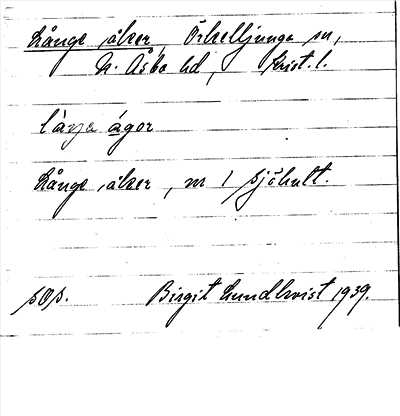 Långe åker, Örkelljunga sn,
N. Åsbo hd, Krist. l.
låŋa ágor
Långe åker, nr 1 Sjöhult.
sOs. Birgit Lundkvist 1939.